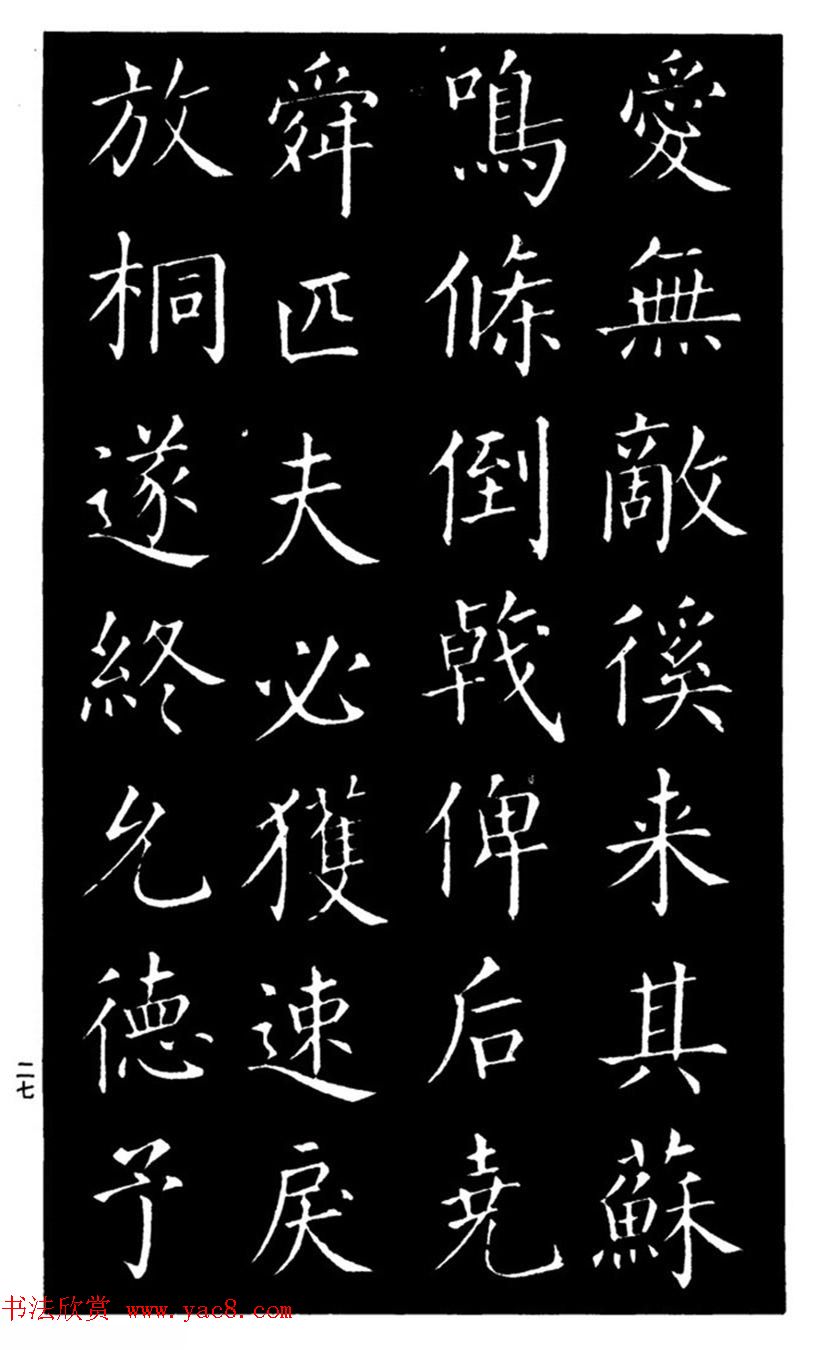 愛無敵徯来其蘇
鳴條倒戟俾后堯
舜匹夫必獲速戾
放桐遂終允德予
二七
书法欣赏 www.yac8.com